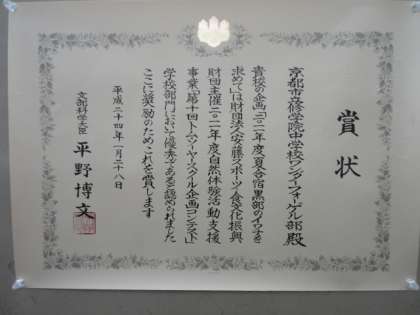 賞状
京都市立修学院中学校ワンダーフォーゲル部殿
貴校の企画「二〇一一年度夏合宿黒部のイワナを
求めて」は財団法人安藤スポーツ・食文化振興
財団主催二〇一一年度自然体験活動支援
事業「第十回トム・ソーヤースクール企画コンテスト」
学校部門において優秀であると認められました
ここに奨励のためこれを賞します
平成二十四年一月二十八日
文部科学大臣 平野博文